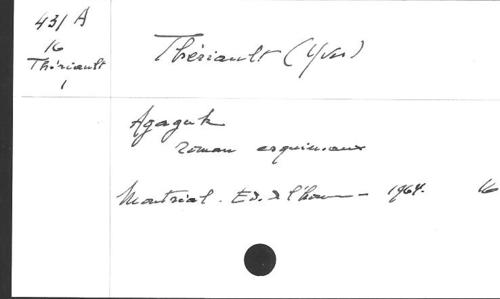 431 A
16
Thériault
1
Thériault (Yves)
Agaguk
roman esquimaux
Montréal. Ed. de l'homme - 1964. 16